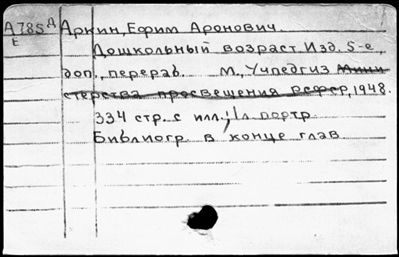 А785 Д Аркин, Ефим Аронович.
Е
Дошкольный возраст. Изд. 5-е,
доп., перераб. М., Учпедгиз Мини
стерства просвещения РСФСР, 1948.
334 стр. с илл.; 1 л. портр.
Библиогр. в конце глав